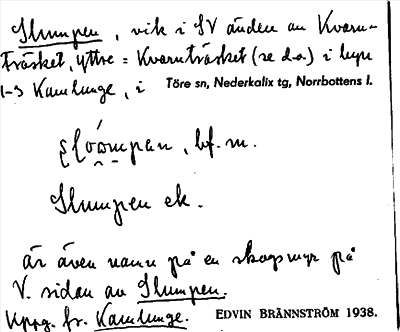 Slumpen, vik i SV änden av Kvarn-
träsket, yttre = Kvarnträsket (se d.o.) i byn
1-3 Kamlunge, i Töre sn, Nederkalix tg, Norrbottens l.
bf. m.
Slumpen ek.
är även namn på en skogsmyr på
V. sidan av Slumpen.
Uppg. fr. Kamlunge. EDVIN BRÄNNSTRÖM 1938.